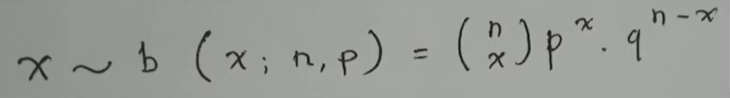 x ~ b (x; n, p) = (n x) p^x . q^{n-x}